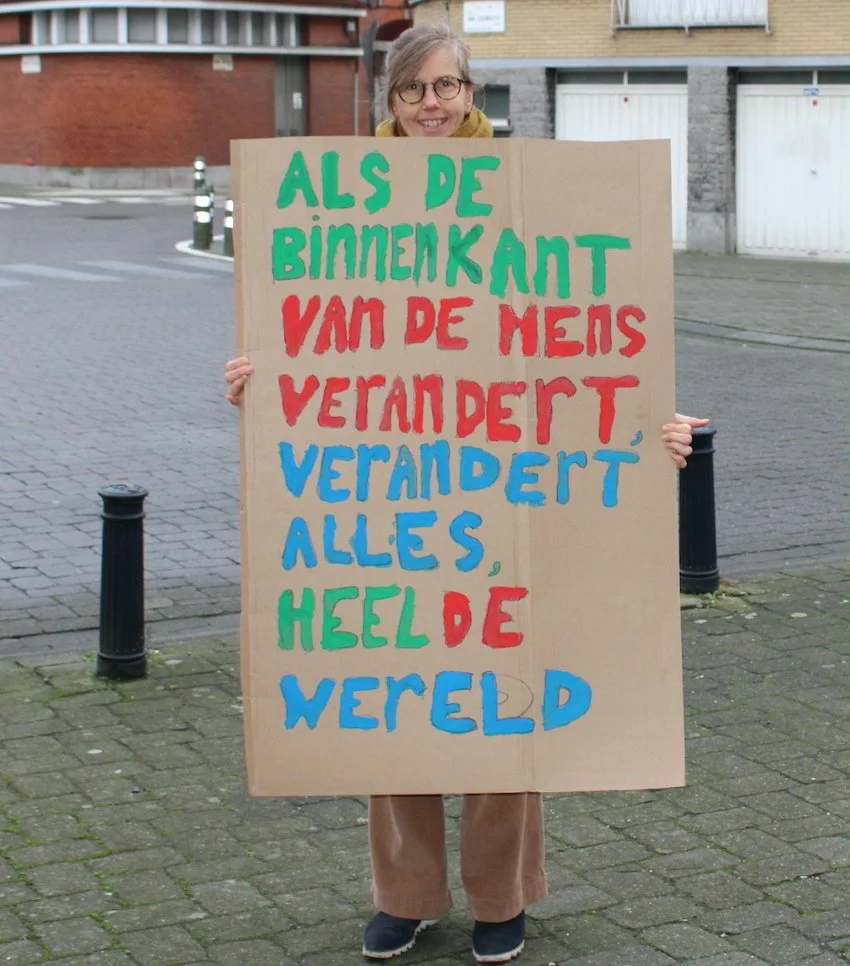 ALS DE
BINNENKANT
VAN DE MENS
VERANDERT,
VERANDERT
ALLES,
HEEL DE
WERELD